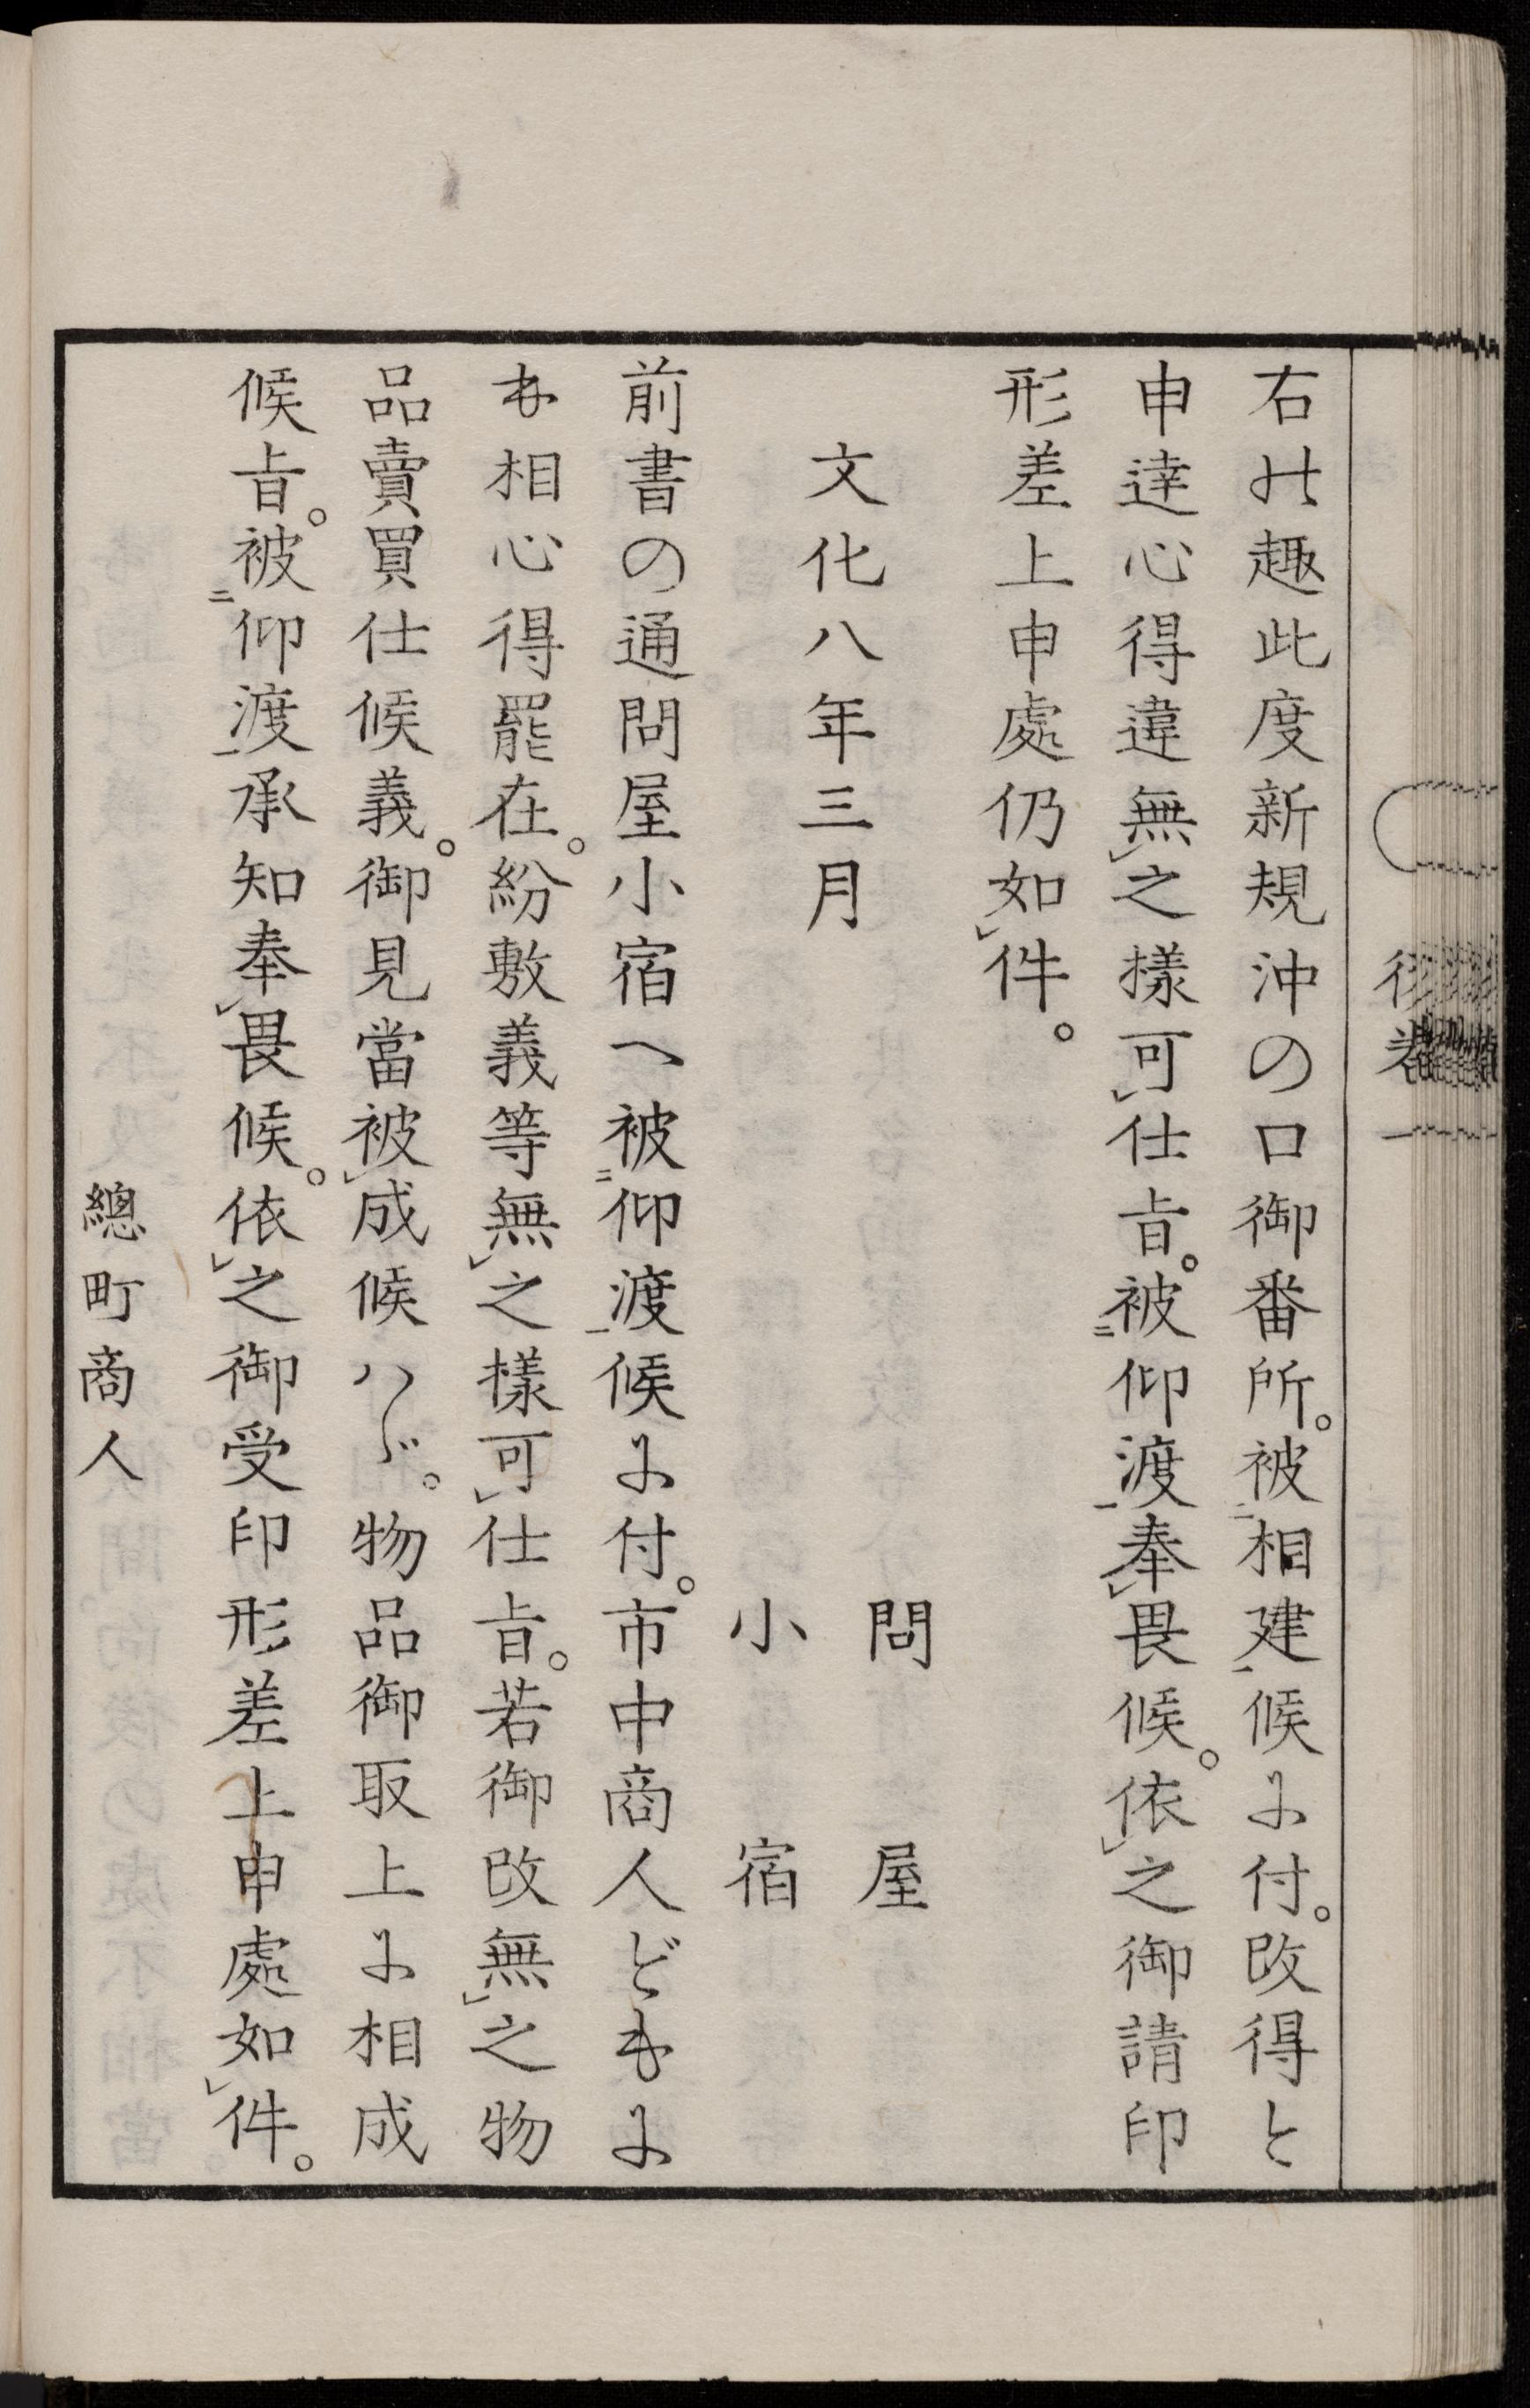 右の趣此度新規沖の口御番所。被㆓相建㆒候に付。改得と
申達心得違無㆑之樣可㆑仕旨。被㆓仰渡㆒奉㆑畏候。依㆑之御請印
形差上申處仍如㆑件。
文化八年三月
問屋
小宿
前書の通問屋小宿へ被㆓仰渡㆒候に付。市中商人どもに
も相心得罷在。紛敷義等無㆑之樣可㆑仕旨。若御改無㆑之物
品賣買仕候義。御見當被㆑成候ハヾ。物品御取上に相成
候旨。被㆓仰渡㆒承知奉㆑畏候。依㆑之御受印形差上申處如㆑件。
總町商人